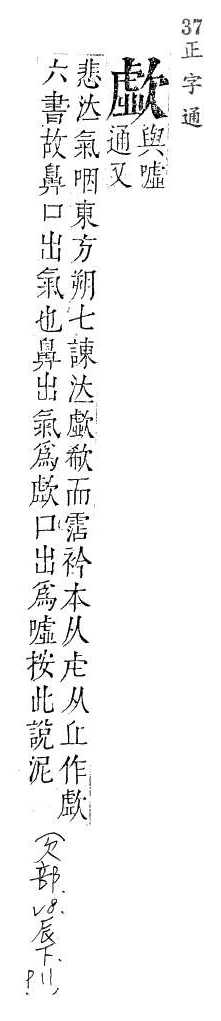 37 正字通
歔 與噓
通又
悲泣氣咽東方朔七諫泣歔欷而霑衿本从虍从丘作歔
六書故鼻口出氣也鼻出氣爲歔口出氣爲噓按此說泥
(欠部. v8. 辰下. P11)